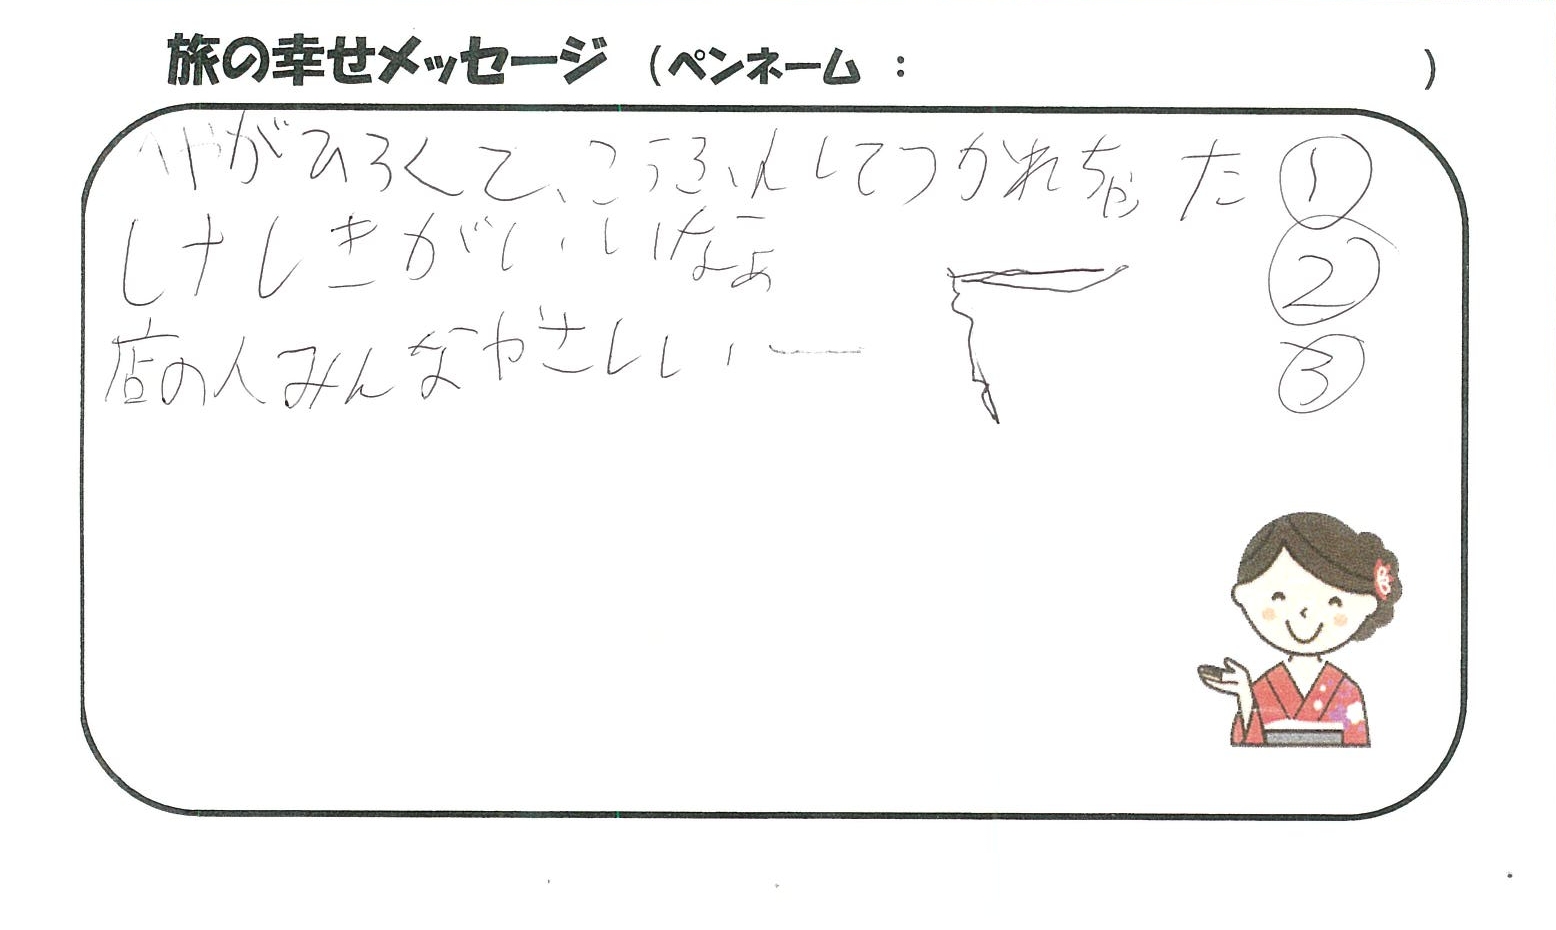 旅の幸せメッセージ (ペンネーム : )
へやがひろくて、こうふんしてつかれちゃった ①
けしきがいいなぁ ②
店の人みんなやさしいー ③